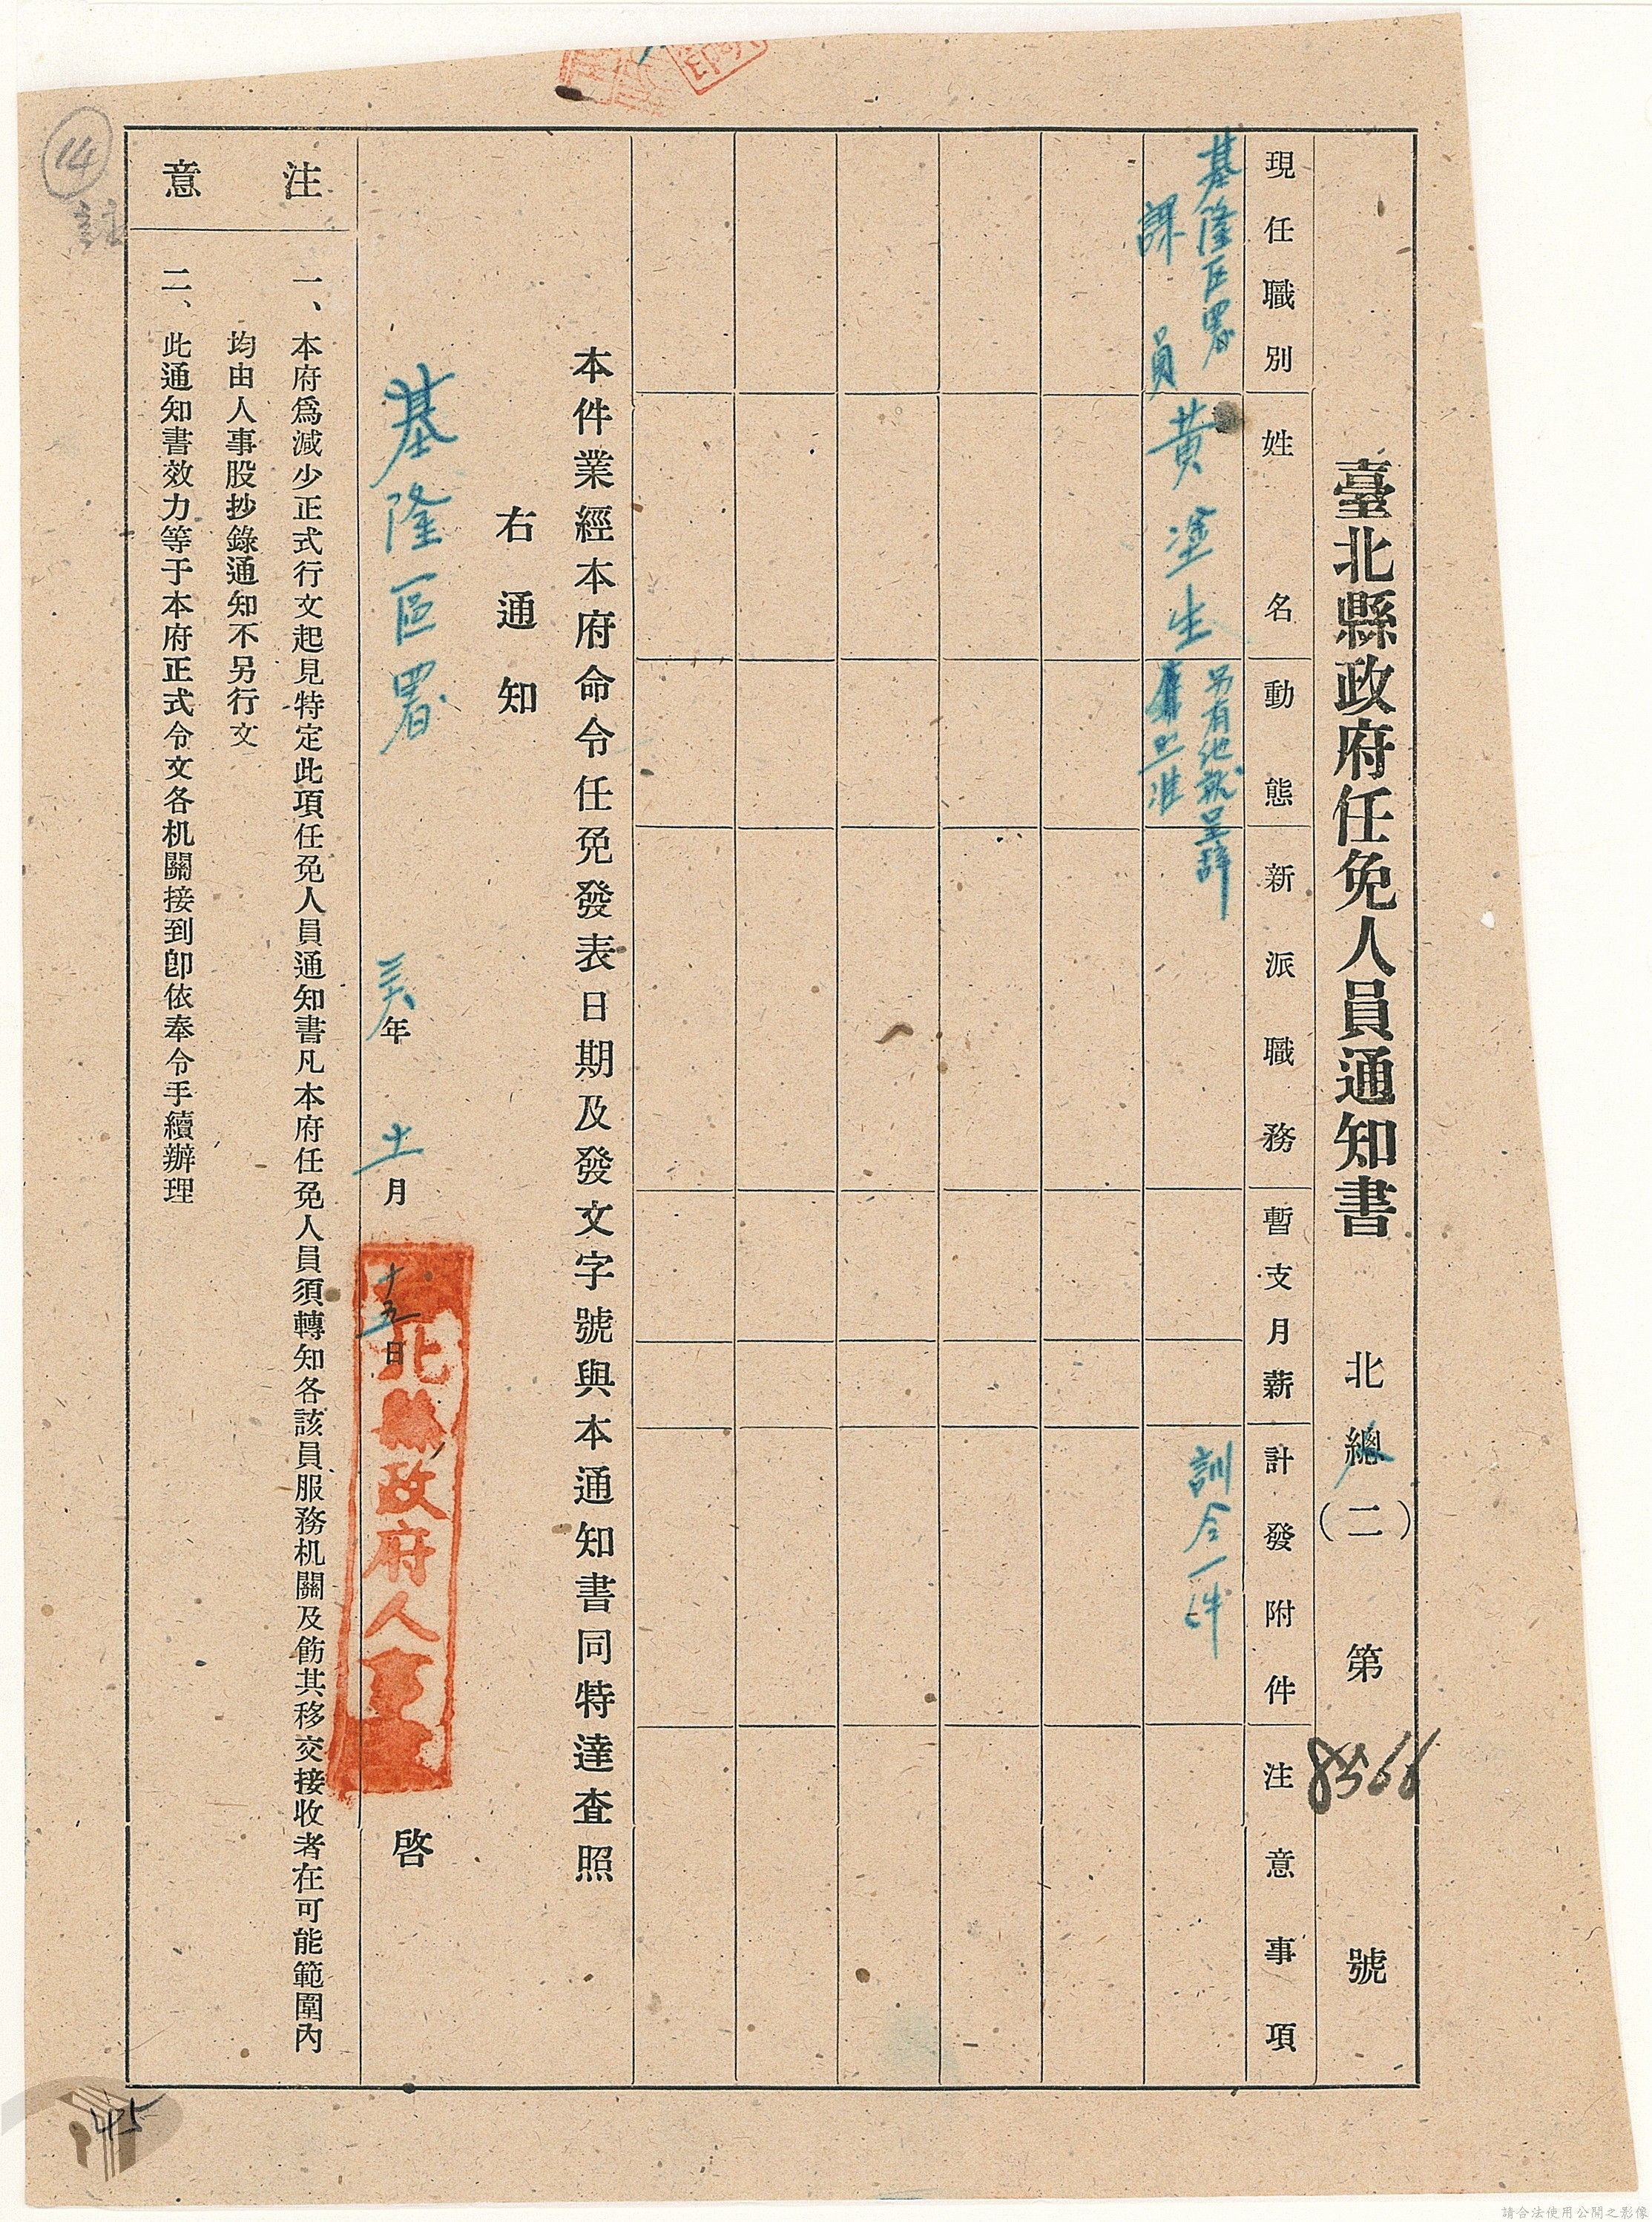 臺北縣政府任免人員通知書 北總人(二) 第8568號
現任職別 姓名 動態 新派職務 暫支月薪 計發附件 注意事項
基隆區署
課員
黃塗生
另有他就呈辭
照准
訓令一件
本件業經本府命令任免發表日期及發文字號與本通知書同特達查照
右通知
基隆區署
卅六年十一月十五日 啓
臺北縣政府人事室
注意
一、本府爲減少正式行文起見特定此項任免人員通知書凡本府任免人員須轉知各該員服務机關及飭其移交接收者在可能範圍內
均由人事股抄錄通知不另行文
二、此通知書效力等于本府正式令文各机關接到卽依奉令手續辦理
14
145
請合法使用公開之影像